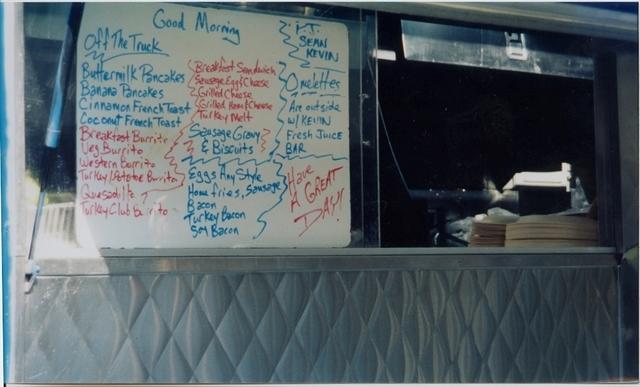 Good Morning
Off The Truck
Buttermilk Pancakes
Banana Pancakes
Cinnamon French Toast
Coconut French Toast
Breakfast Burrito
Veg Burrito
Western Burrito
Turkey/Potatoe Burrito
Quesadilla
Turkey Club Burrito
Breakfast Sandwich
Sausage Egg & Cheese
Grilled Cheese
Grilled Ham & Cheese
Turkey Melt
Sausage Gravy
& Biscuits
Eggs Any Style
Home fries, Sausage
Bacon
Turkey Bacon
Soy Bacon
SEAN
KEVIN
Omelettes
Are outside
w/ KEVIN
Fresh Juice
BAR
Have
A GREAT
DAY!!